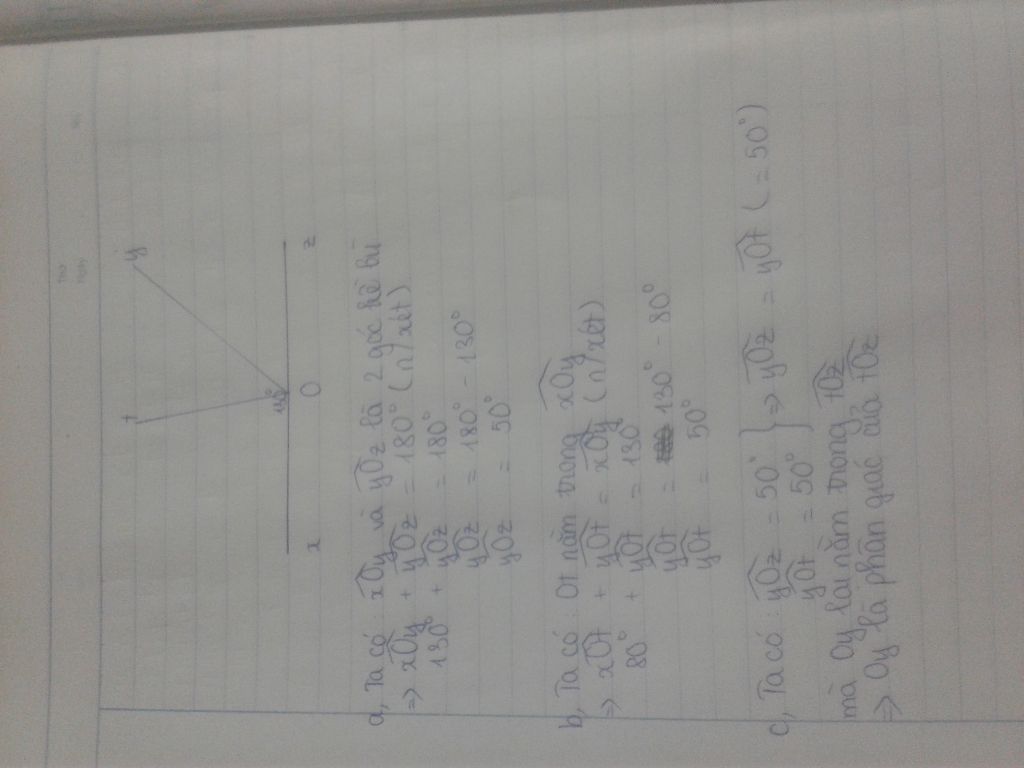 t
y
x
O
z
a, Ta có: xOy và yOz là 2 góc kề bù
=> xOy + yOz = 180° (n/xét)
130° + yOz = 180°
yOz = 180° - 130°
yOz = 50°
b, Ta có: Ot nằm trong xOy
=> xOt + yOt = xOy (n/xét)
80° + yOt = 130
yOt = 130° - 80°
yOt = 50°
c, Ta có: yOz = 50° } => yOz = yOt (= 50°)
yOt = 50°
mà Oy lại nằm trong tOz
=> Oy là phân giác của tOz